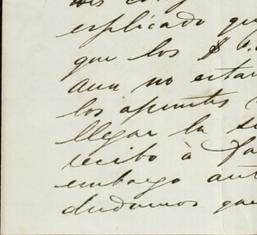 explicado que
que los $
aun no esta
los apuntes
llegar la
recibo à
embargo ant
dudamos que